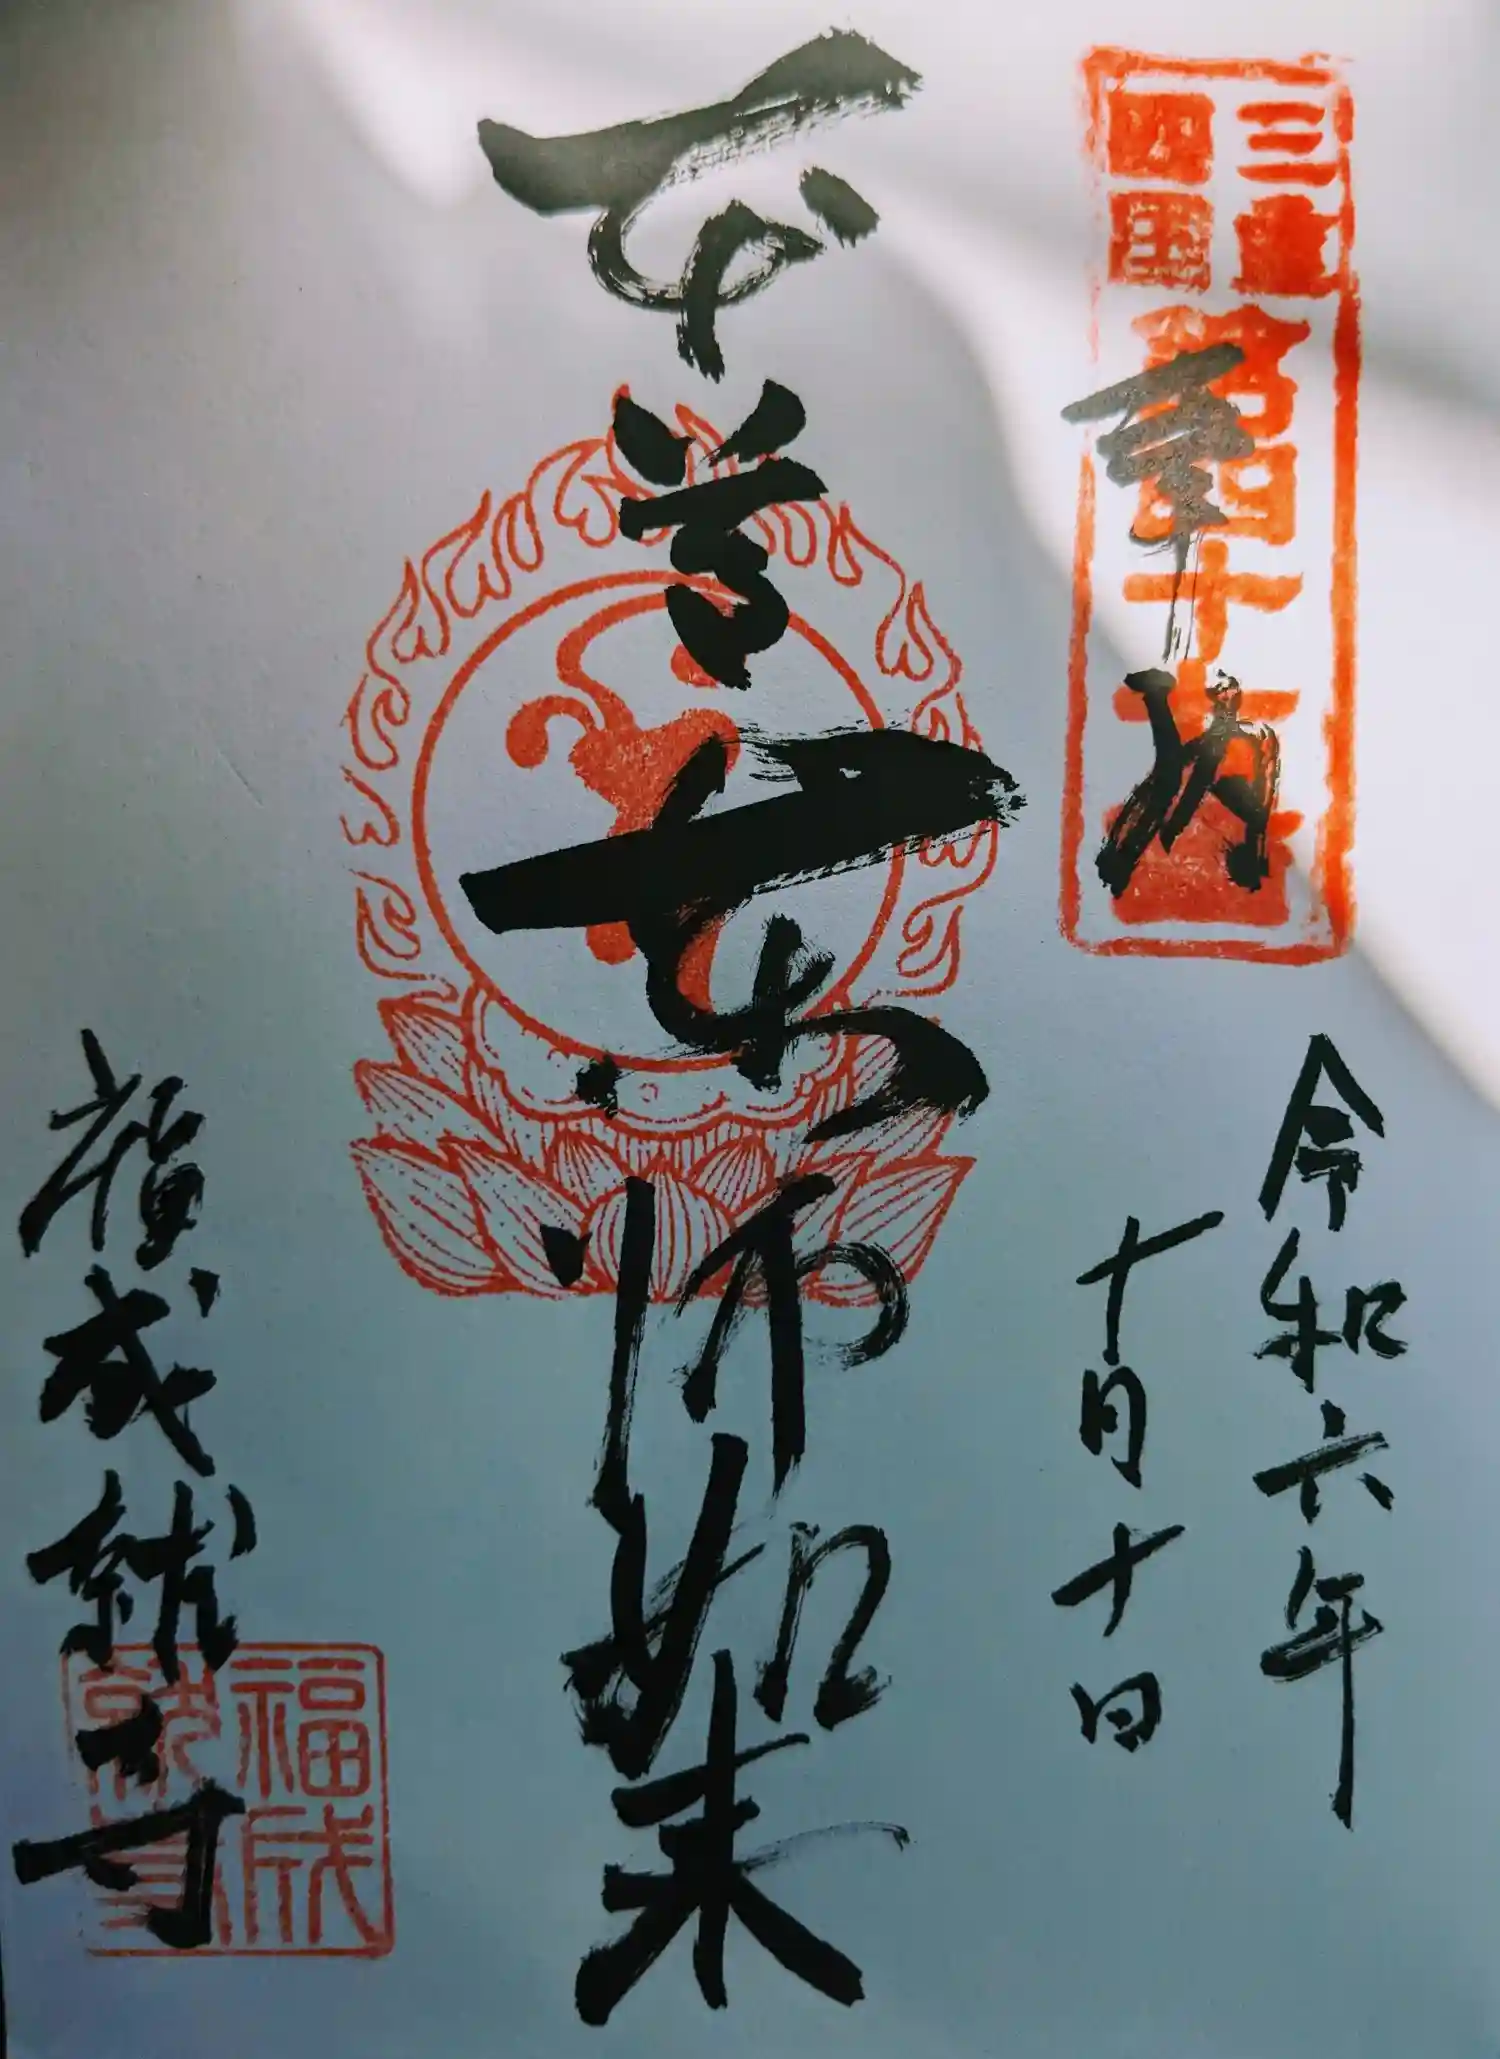 三重
四国
第四十七番
奉納
令和六年
十月十日
本尊薬師如来
福成就寺
福成
就寺